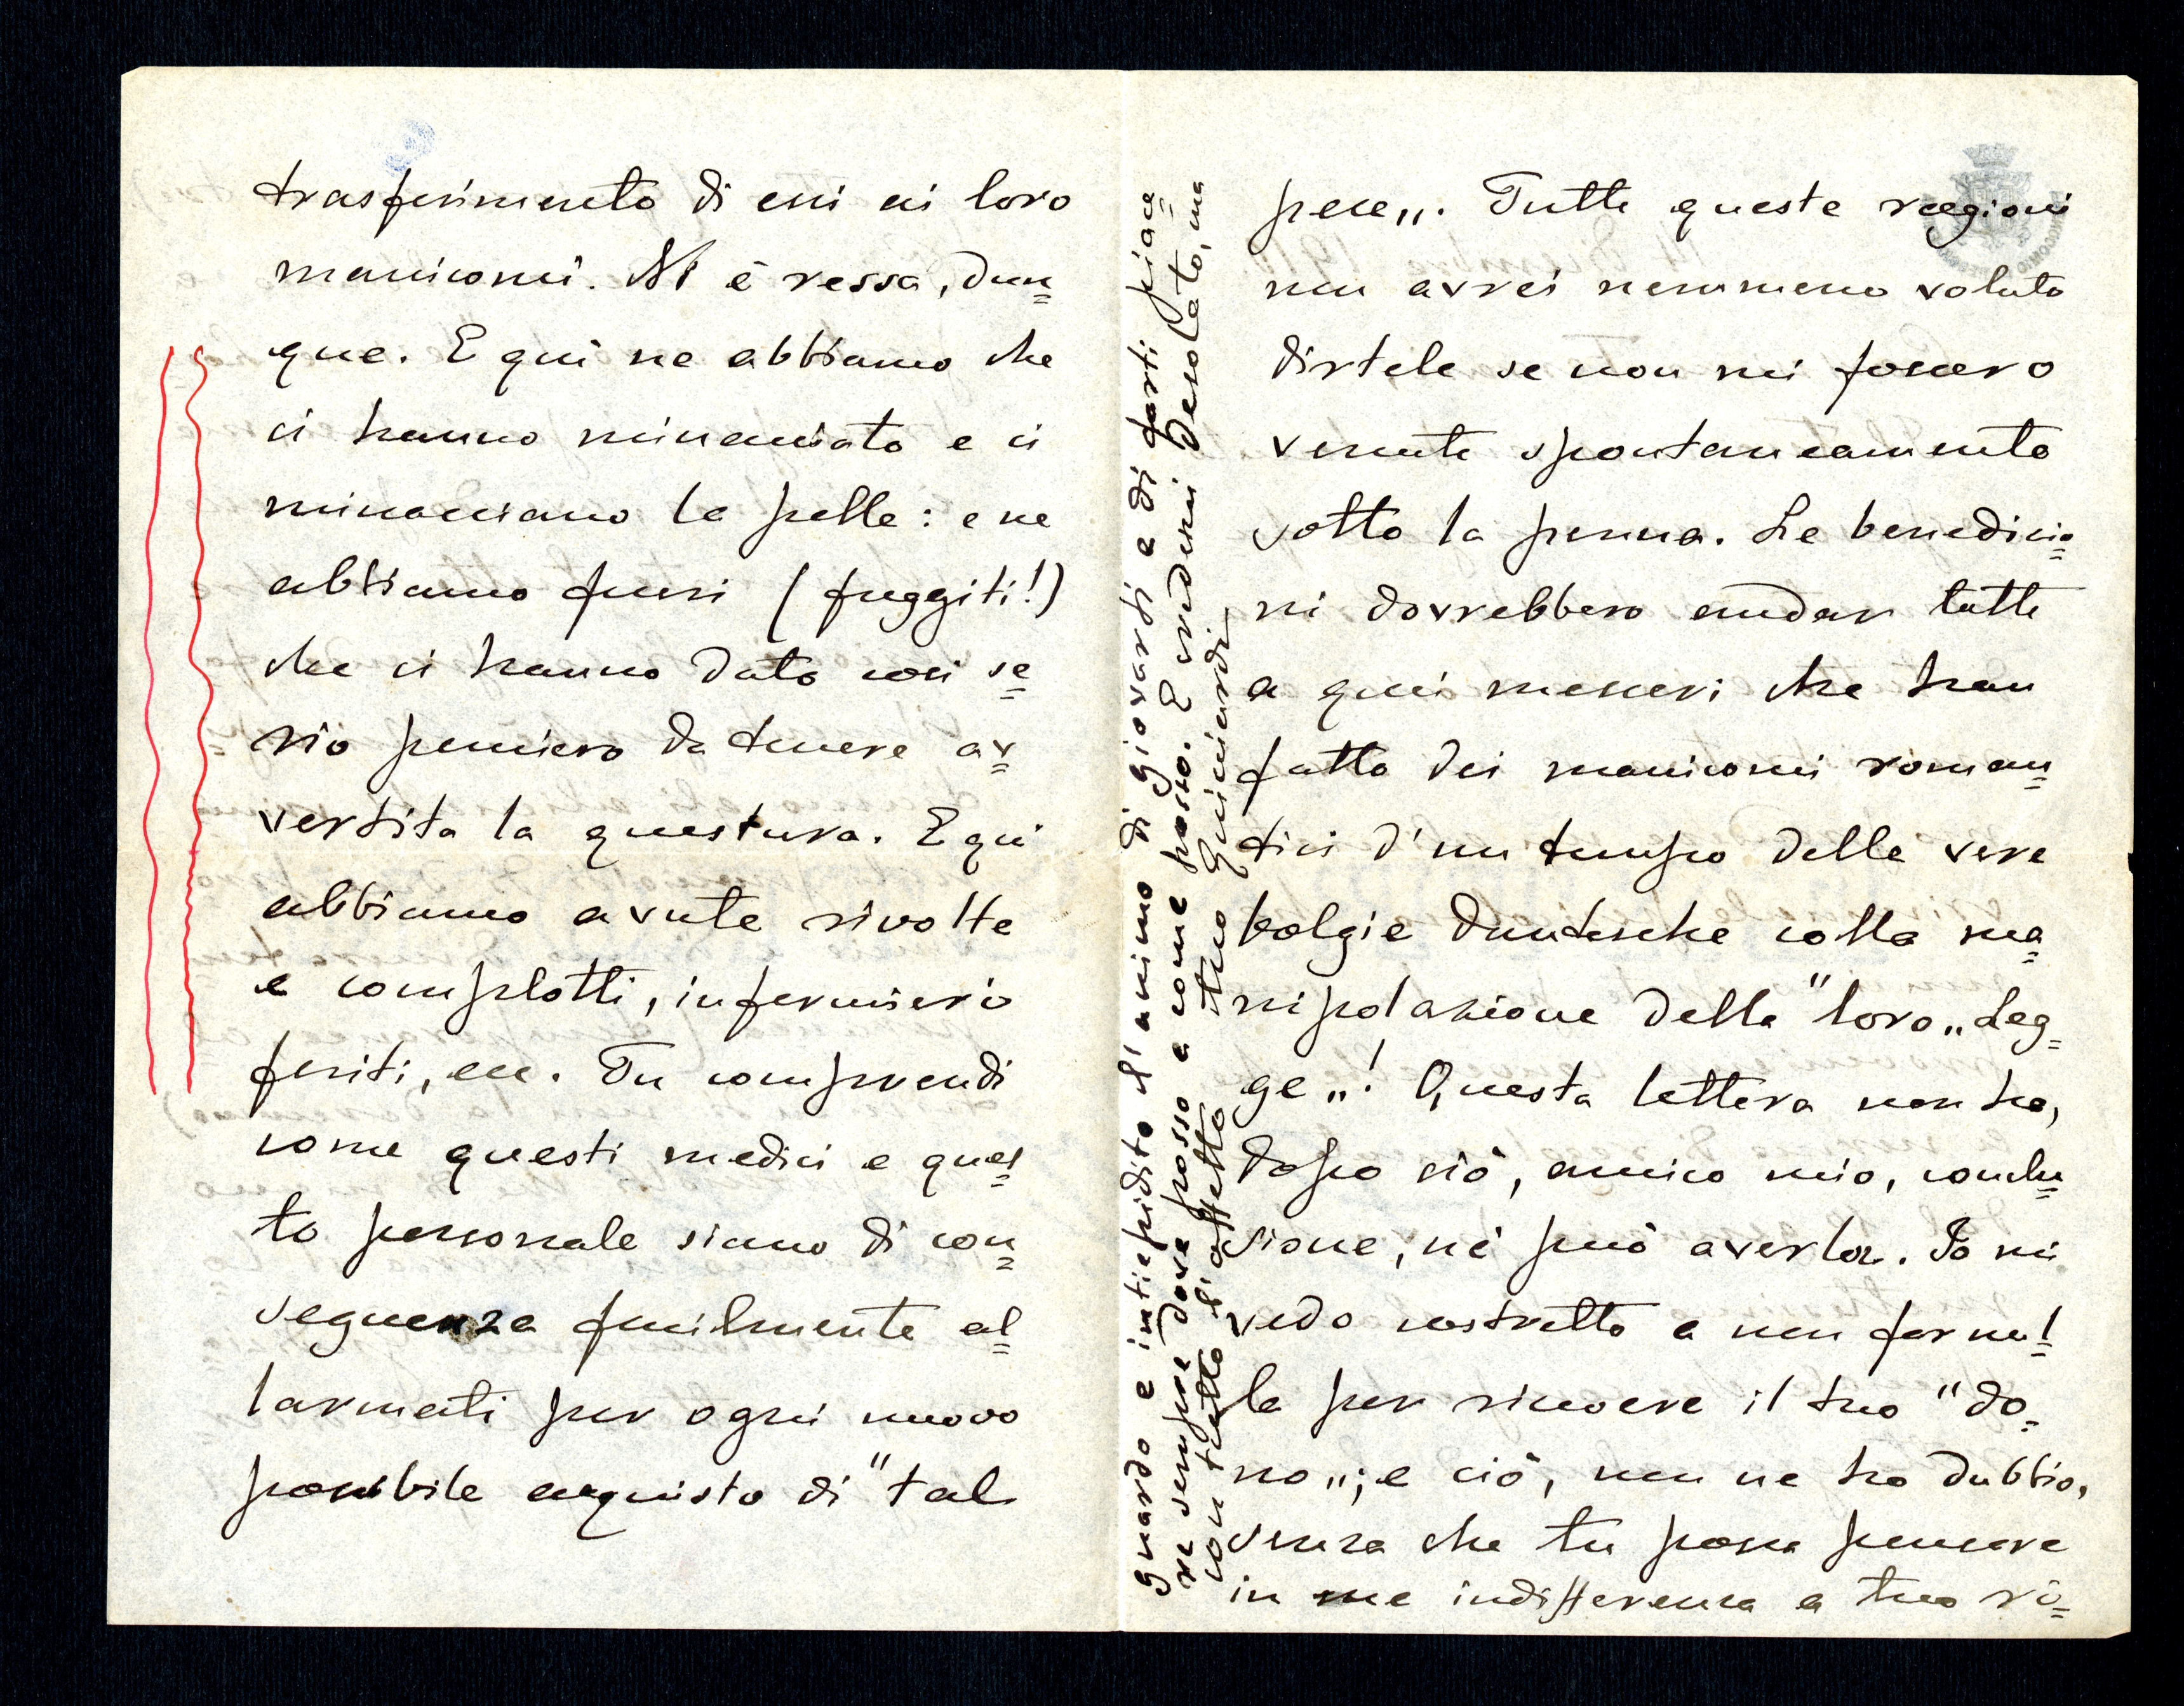 trasferimento di essi ai loro
manicomi. Vi è ressa, dun=
que. E qui ne abbiamo che
ci hanno minacciato e ci
minacciano la pelle: e ne
abbiamo fuori (fuggiti!)
che ci hanno dato così se=
rio pensiero da tenere av=
vertita la questura. E qui
abbiamo avute rivolte
e complotti, infermieri
feriti, ecc. Tu comprendi
come questi medici e ques=
to personale siano di con=
seguenza facilmente al=
larmati per ogni nuovo
possibile acquisto di "tal
pece„. Tutte queste ragioni
non avrei nemmeno voluto
dirtele se non mi fossero
venute spontaneamente
sotto la penna. Le benedizio=
ni dovrebbero andar tutte
a quei messeri che han
fatto dei manicomi roman=
tici d'un tempo delle vere
bolgie dantesche colla ma=
nipolazione della "loro„ Leg=
ge„! Questa lettera non ha,
dopo ciò, amico mio, conclu=
sione, nè può averla. Io mi
vedo costretto a non formul=
la per ricevere il tuo "do=
no„; e ciò, non ne ho dubbio,
senza che tu possa pensare
in me indifferenza a tuo ri=
guardo e intiepidito l'animo di giovarti e di farti piace=
re sempre dove posso e come posso. E credimi desolato, ma
con tutto l'affetto tuo Guicciardi